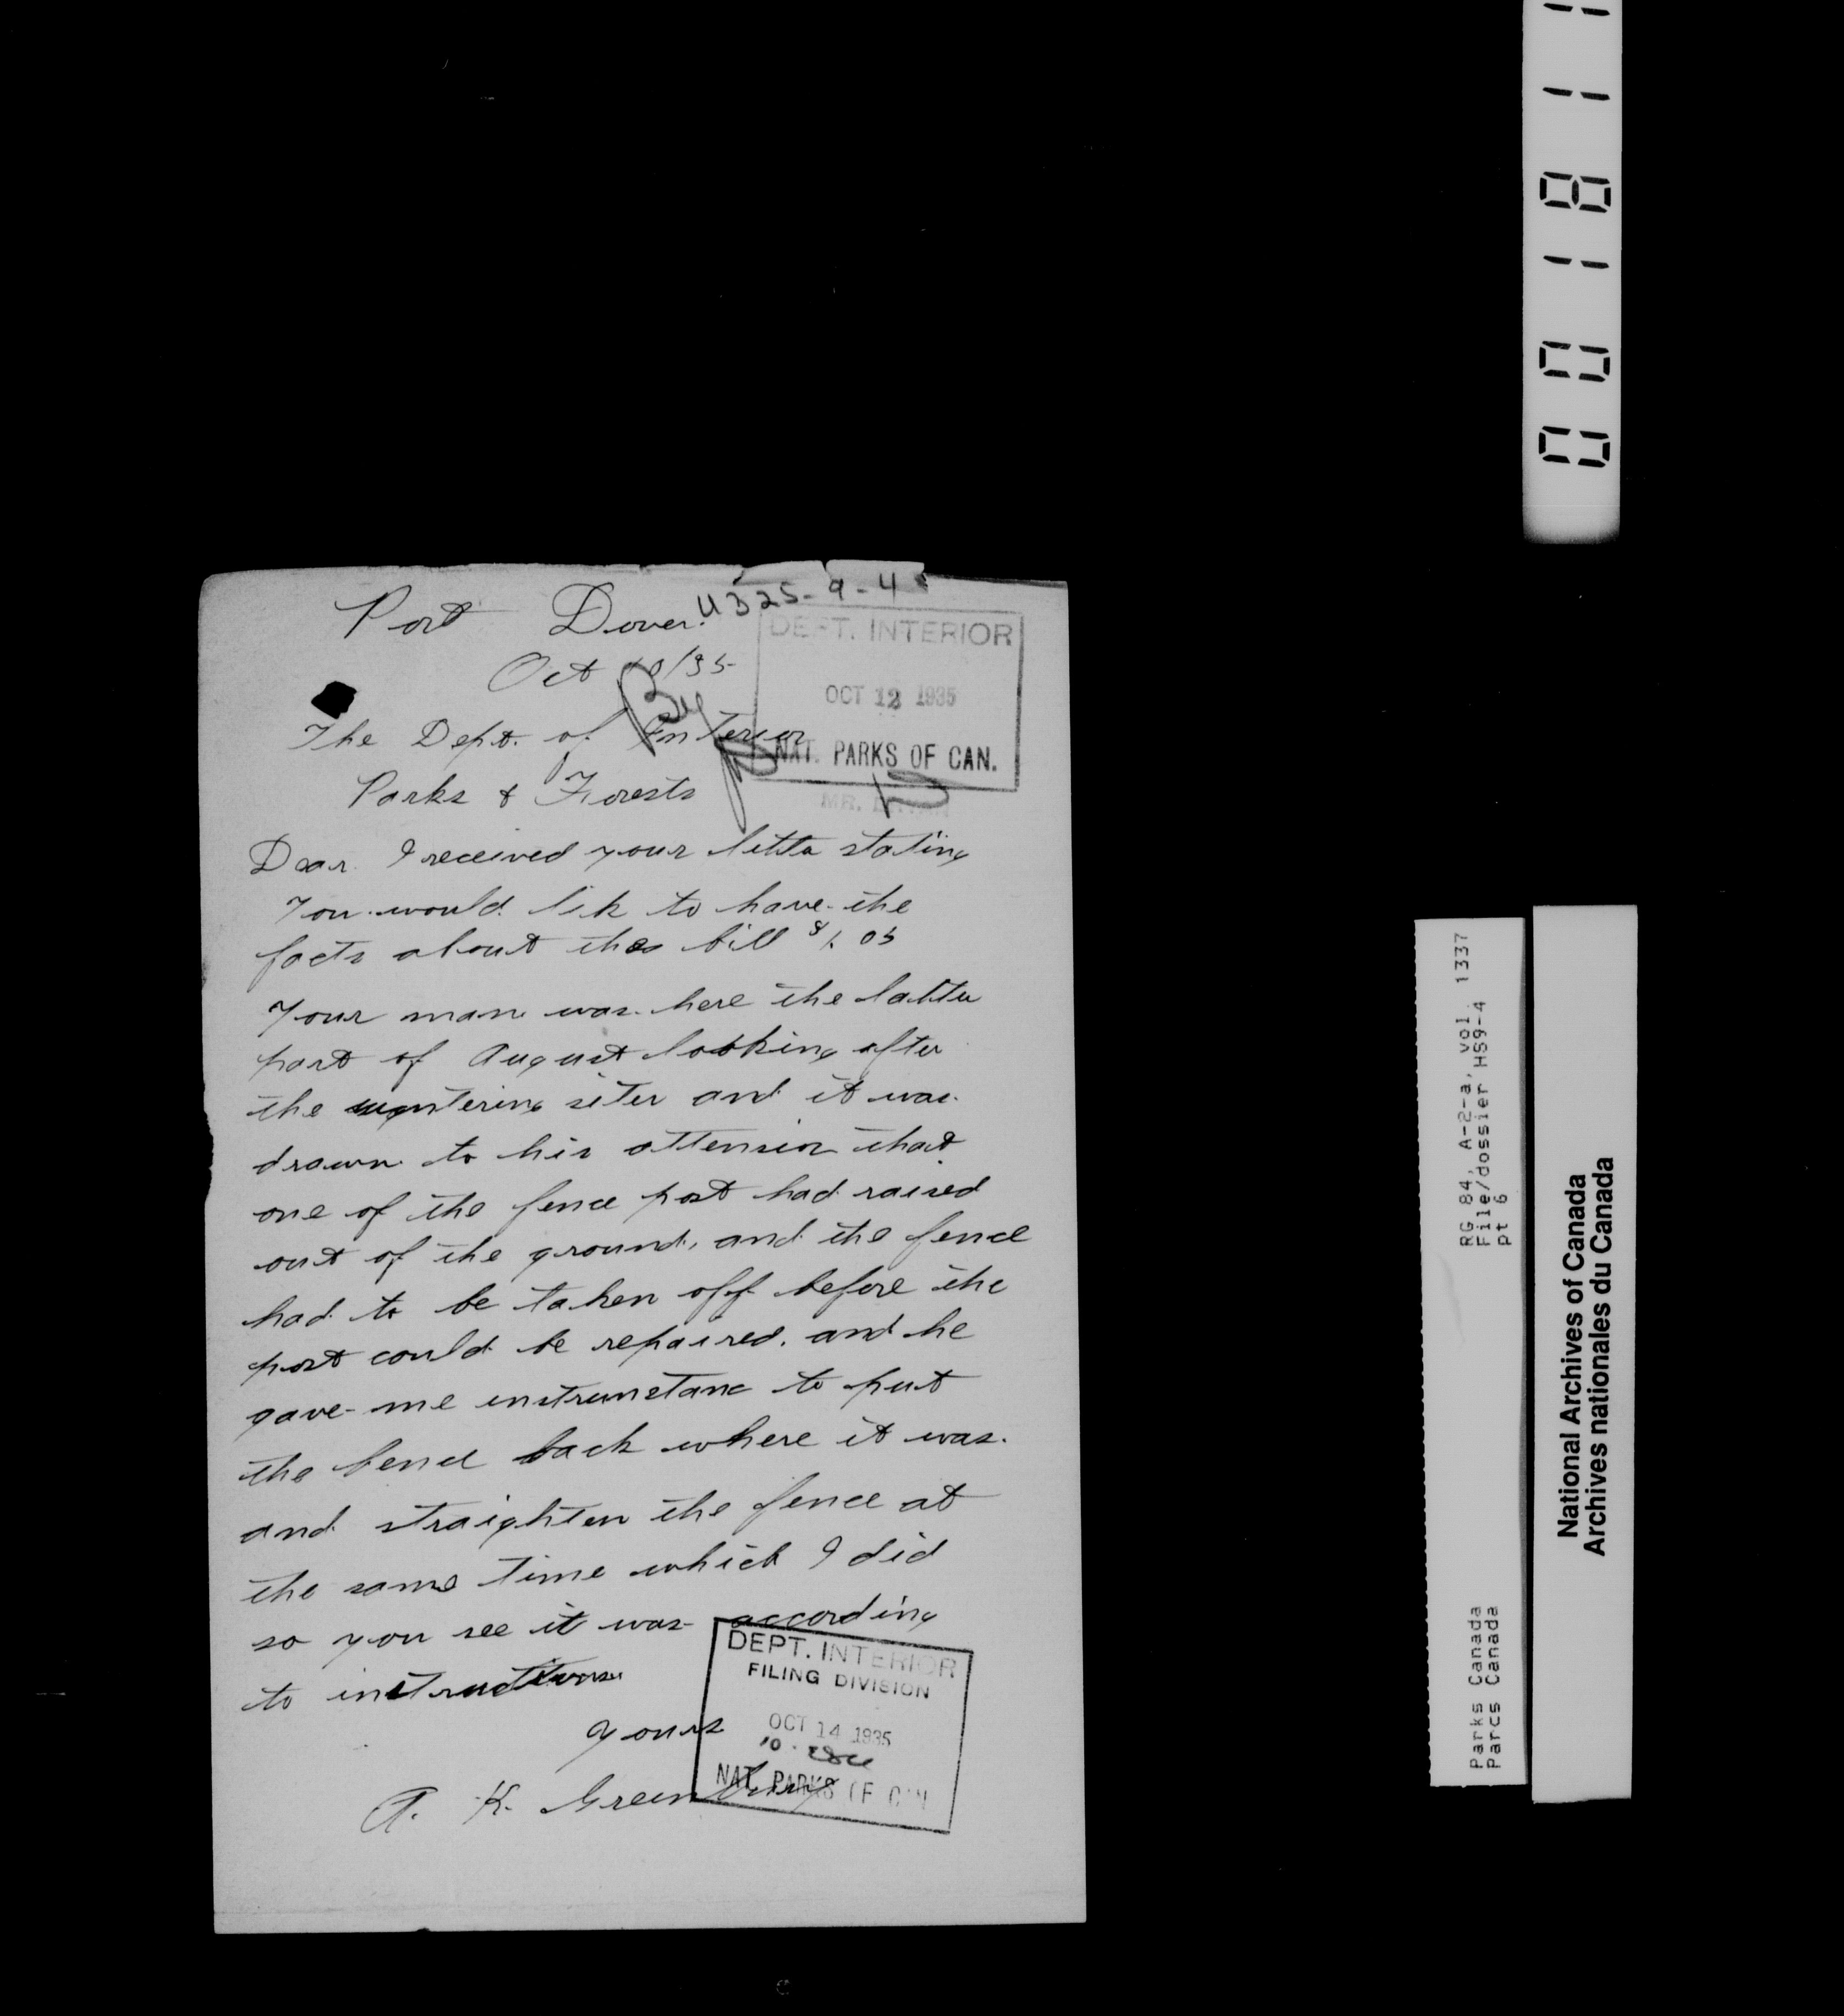 Port Dover.
U325-9-4
Oct 10/35
DEPT. INTERIOR
OCT 12 1935
NAT. PARKS OF CAN.
MR.
The Dept. of Interior
Parks & Forests
Dear. I received your letta stating
You would lik to have the
facts about the bill $1.05
Your man was here the latter
part of August looking after
the wintering siter and it was
drawn to his attension that
one of the fence post had raised
out of the ground, and the fence
had to be taken off before the
post could be repaired. and he
gave me instrunstanc to put
the bence back where it was.
and straighten the fence at
the same time which I did
so you see it was according
to instructions
yours
A. K. Greenbury
DEPT. INTERIOR
FILING DIVISION
OCT 14 1935
NAT. PARKS OF CAN
001811
RG 84, A-2-a, vol. 1337
File/dossier HS9-4
pt 6
Parks Canada
Parcs Canada
National Archives of Canada
Archives nationales du Canada